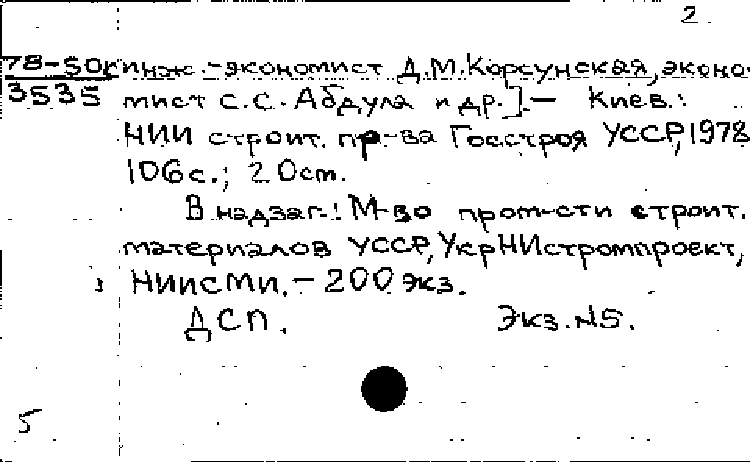 2.
78-50к инж.-экономист Д.М.Корсунская, эконо-
3535 мист С.С. Абдула и др.].— Киев.:
НИИ строит. пр-ва Госстроя УССР, 1978
106с.; 20см.
В надзаг.: М-во пром-сти строит.
материалов УССР, УкрНИстромпроект,
НИИСМИ.— 200 экз.
ДСП. Экз. №5.
5